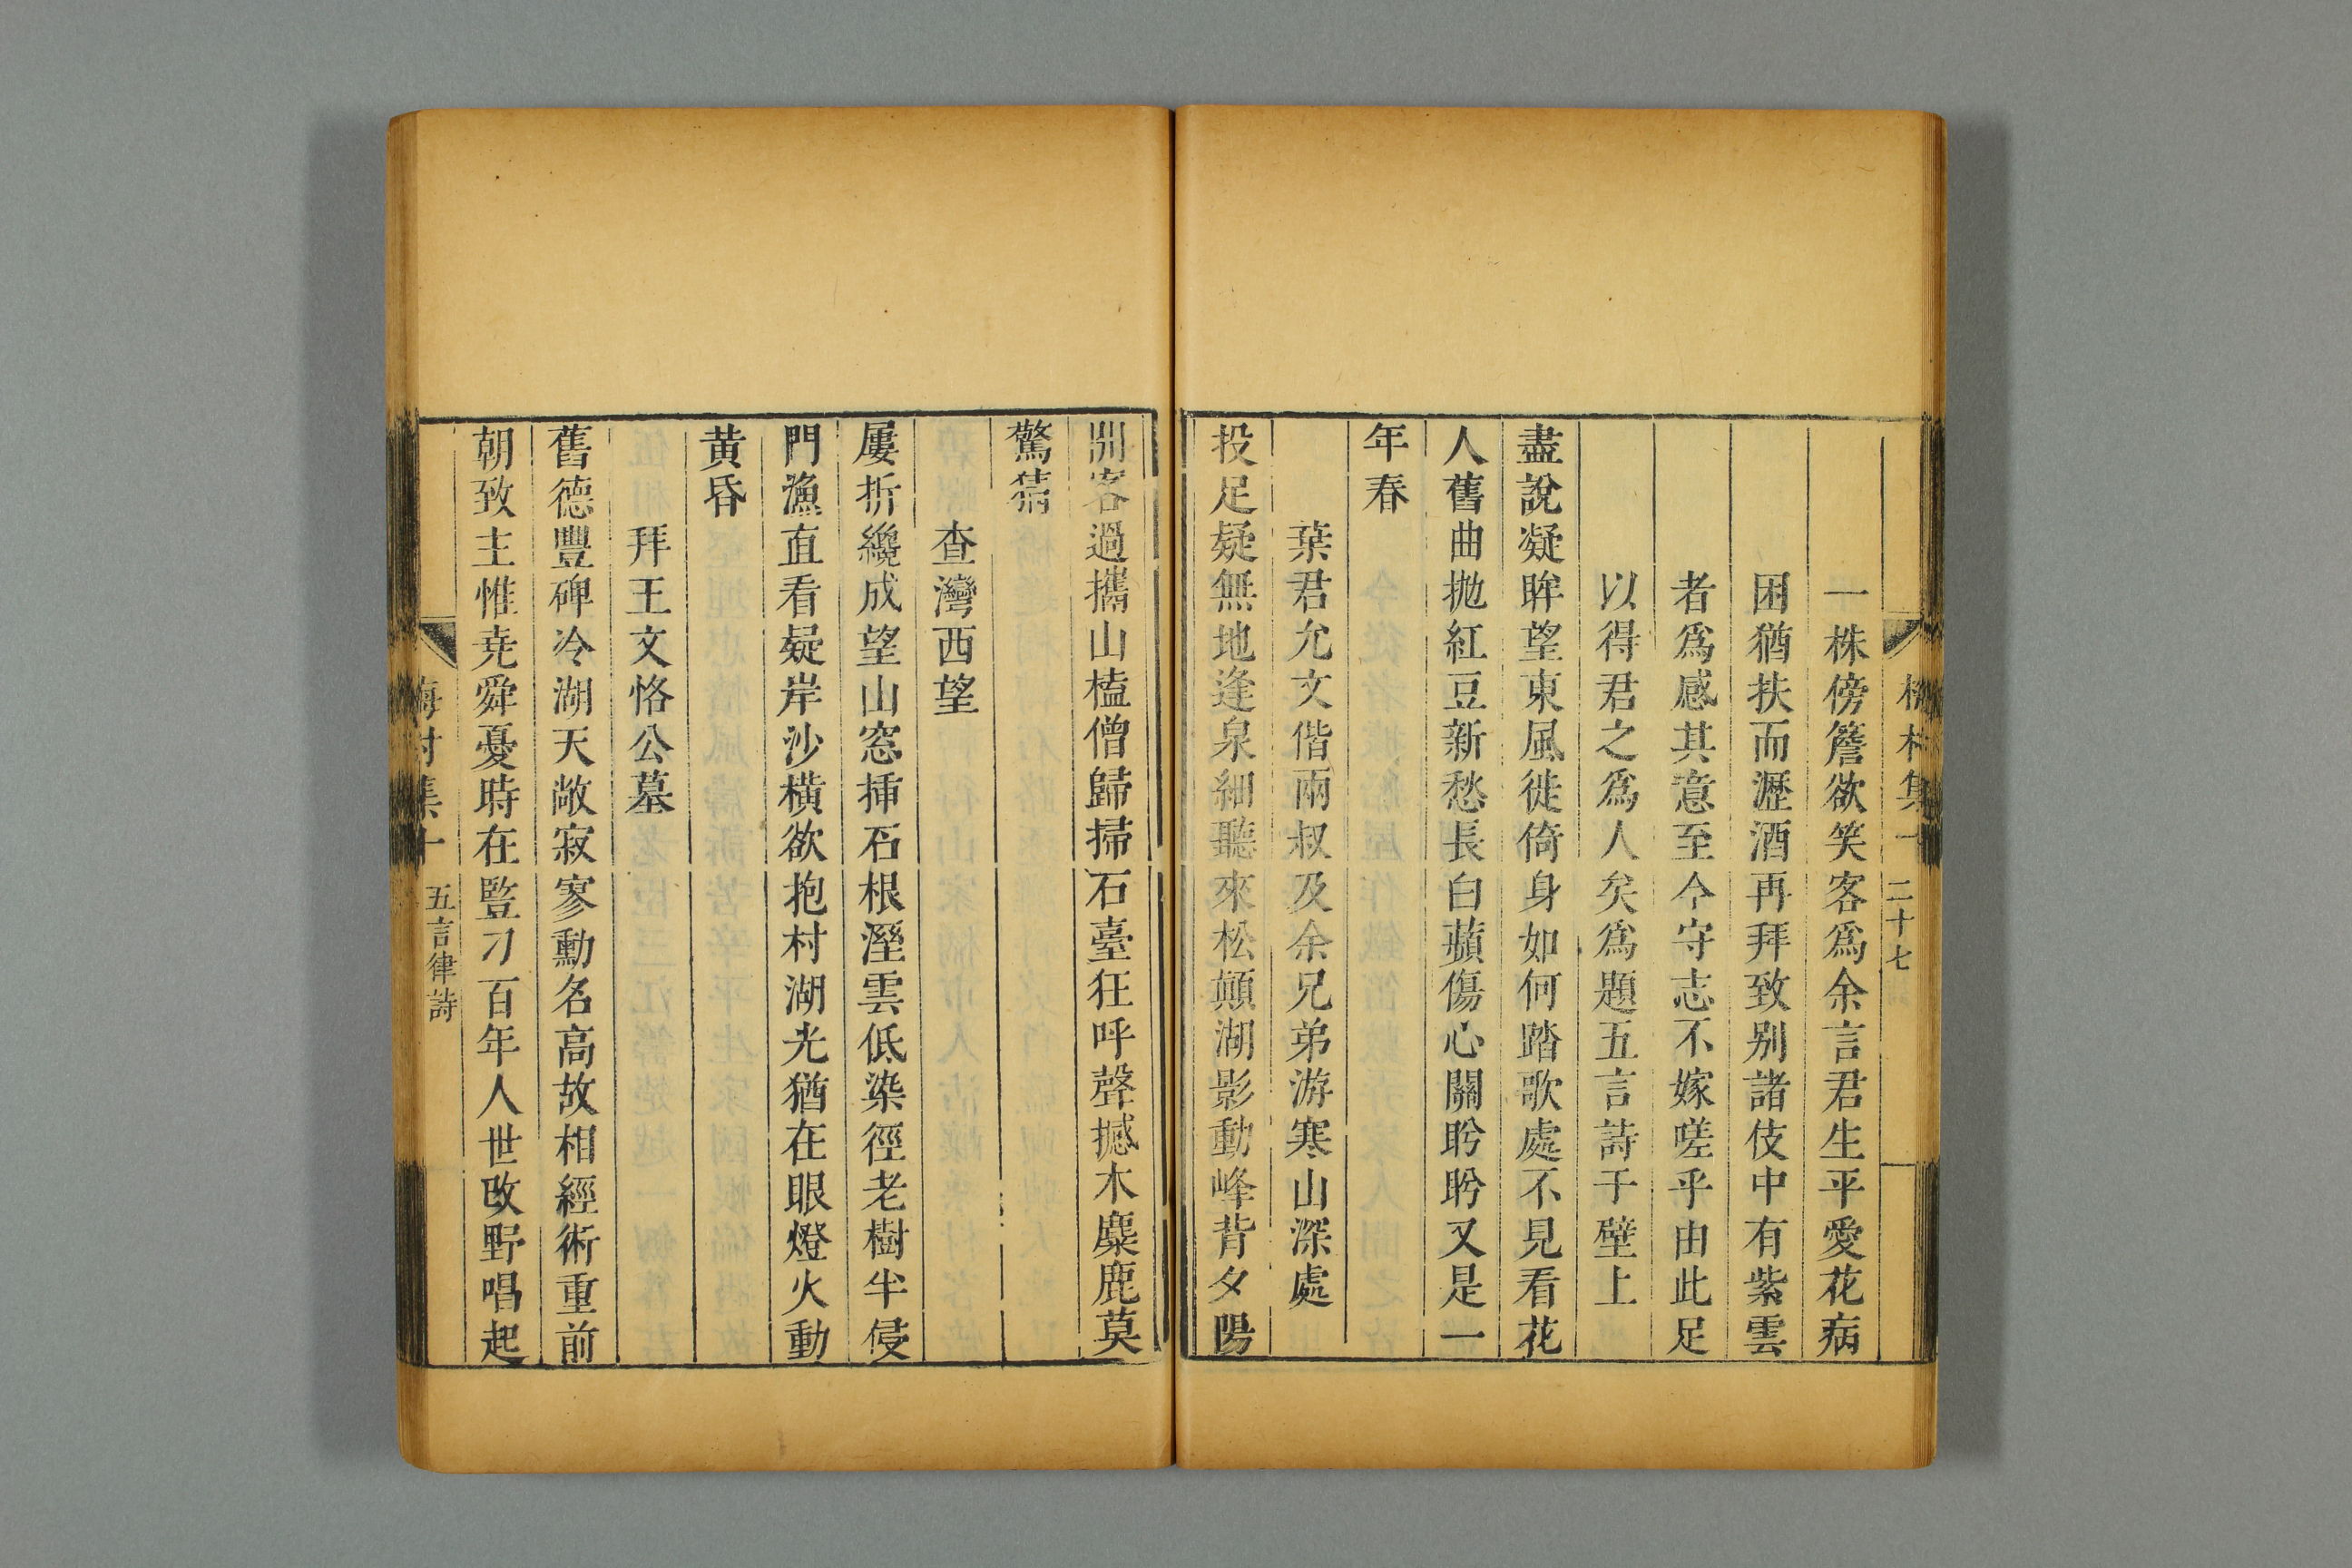 梅村集十 二十七
一株傍簷欲笑客爲余言君生平愛花病
困猶扶而瀝酒再拜致别諸伎中有紫雲
者爲感其意至今守志不嫁嗟乎由此足
以得君之爲人矣爲題五言詩于壁上
盡說凝眸望東風徙倚身如何踏歌處不見看花
人舊曲拋紅豆新愁長白蘋傷心關盻盻又是一
年春
葉君允文偕兩叔及余兄弟游寒山深處
投足疑無地逢泉細聽來松顛湖影動峰背夕陽
開客過攜山榼僧歸掃石臺狂呼聲撼木麋鹿莫
驚猜
查灣西望
屢折纔成望山窓揷石根溼雲低染徑老樹半侵
門漁直看疑岸沙橫欲抱村湖光猶在眼燈火動
黄昏
拜王文恪公墓
舊德豐碑冷湖天敞寂寥勳名高故相經術重前
朝致主惟堯舜憂時在監刁百年人世改野唱起
梅村集十 五言律詩